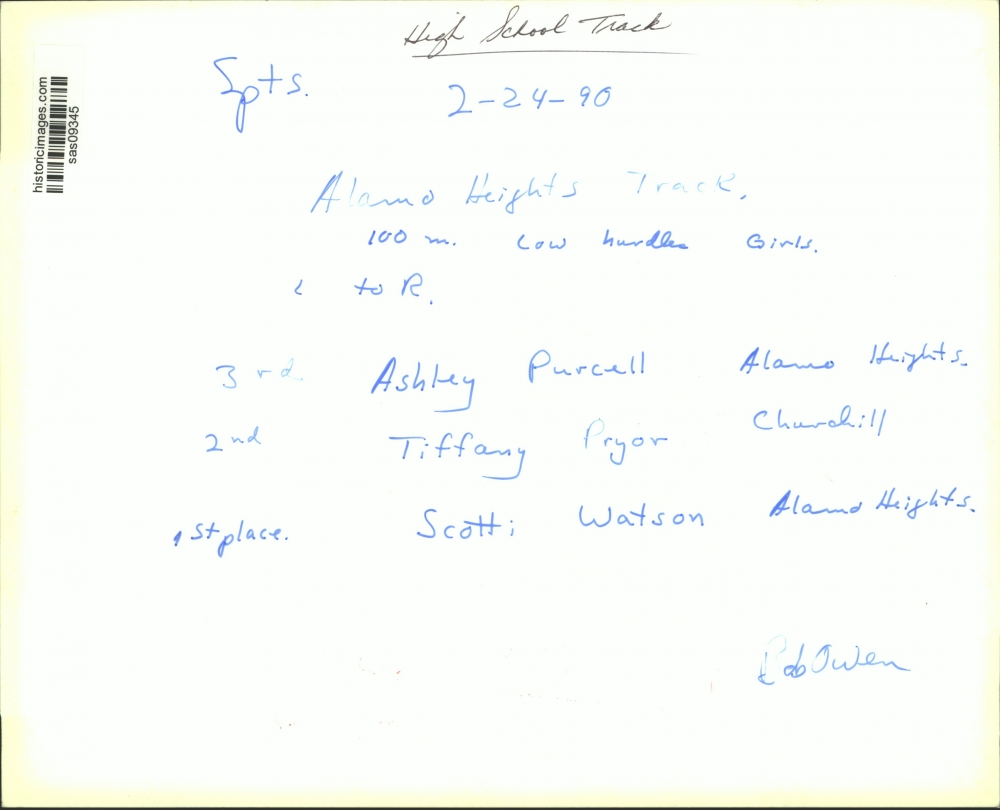 High School Track
historicimages.com
sas09345
Spts.
2-24-90
Alamo Heights Track.
100 m. Low hurdles Girls.
L to R.
3rd. Ashley Purcell Alamo Heights.
2nd Tiffany Pryor Churchill
1st place. Scotti Watson Alamo Heights.
Rob Owen